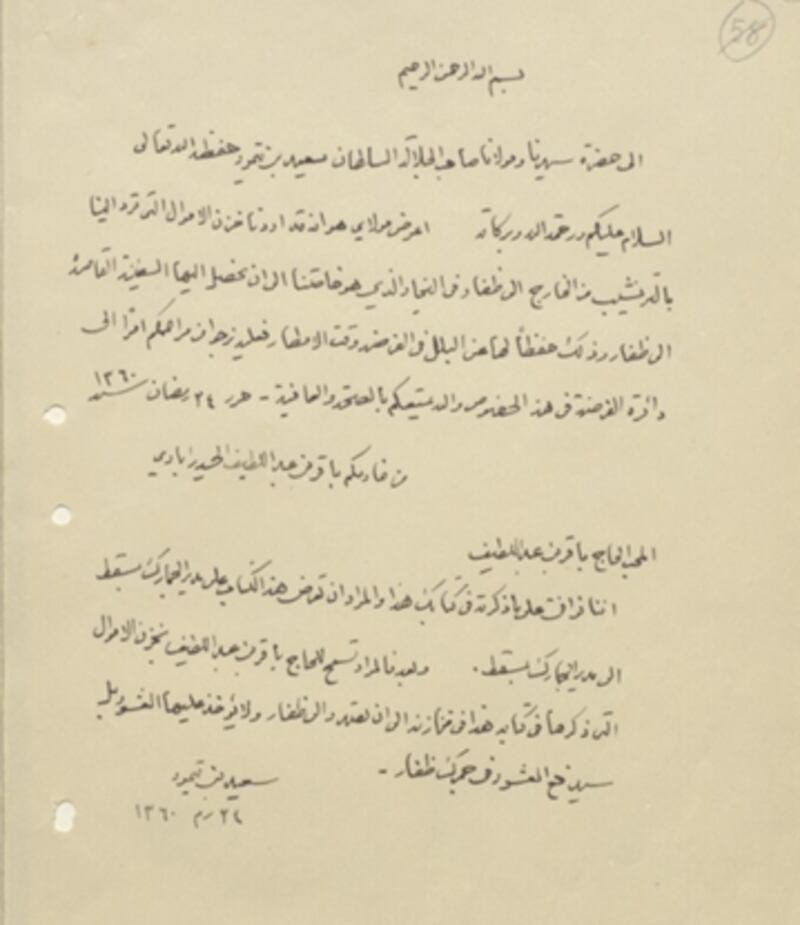 58
بسم الله الرحمن الرحيم
الى حضرة سيدنا ومولانا صاحب الجلالة السلطان سعيد بن تيمور حفظه الله تعالى
السلام عليكم ورحمة الله وبركاته اعرض مولاي هو انه قد اردنا نخزن الاموال التي ترد الينا
من الخارج الى ظفار في الذي هو خاصتنا الى ان يحصل اليها السفينة القاصدة
الى ظفار وذلك حفظاً لها عن البلل في الفرضة وقت الامطار فعليه نرجو ان مراحمكم امرا الى
دائرة الفرضة في هذا الخصوص والله يمتعكم بالصحة والعافية - حرر ٢٤ رمضان سنة ١٣٦٠
من خادمكم باقر بن عبد اللطيف الحيدرابادي
المحب الحاج باقر بن عبد اللطيف
اننا نوافق على ما ذكرته في كتابك هذا والمراد ان تعرض هذا الكتاب على مدير الجمارك بمسقط
الى مدير الجمارك بمسقط. وبعد فالمراد تسمح للحاج باقر بن عبد اللطيف بخزن الاموال
التي ذكرها في كتابه هذا في مخازنه الى ان تصدر الى ظفار ولا يؤخذ عليها العشور بل
سيدفع العشور في جمرك ظفار -
سعيد بن تيمور
٢٤ رم ١٣٦٠